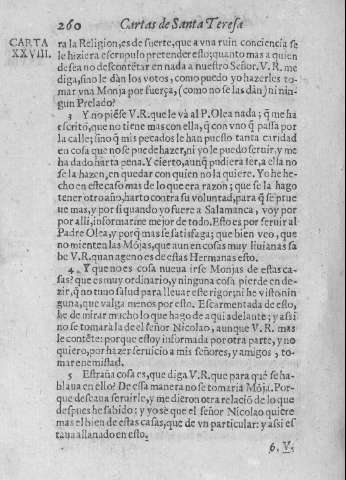 260 Cartas de Santa Teresa
CARTA XXVIII.
ra la Religion, es de suerte, que a vna ruin conciencia se
le hiziera escrupulo pretender esto; quanto mas a quien
desea no descontẽtar en nada a nuestro Señor. V. R. me
diga, sino le dàn los votos, como puedo yo hazerles to-
mar vna Monja por fuerça, (como no se las dàn) ni nin-
gun Prelado?
3 Y no piẽse V. R. que le và al P. Olea nada; q̃ me ha
escrito, que no tiene mas con ella, q̃ con vno q̃ passa por
la calle; sino q̃ mis pecados le han puesto tanta caridad
en cosa que no se puede hazer, ni yo le puedo seruir, y me
ha dado harta pena. Y cierto, aunq̃ pudiera ser, a ella no
se la hazen, en quedar con quien no la quiere. Yo he he-
cho en este caso mas de lo que era razon; que se la hago
tener otro año, harto contra su voluntad, para q̃ se prue
ue mas, y por si quando yo fuere a Salamanca, voy por
por alli, informarme mejor de todo. Esto es por seruir al
Padre Olea, y porq̃ mas se satisfaga; que bien veo, que
no mienten las Mõjas, que aun en cosas muy liuianas sa
be V. R. quan ageno es de estas Hermanas esto.
4 Y que no es cosa nueua irse Monjas de estas ca-
sas? que es muy ordinario, y ninguna cosa pierde en de-
zir, q̃ no tuuo salud para lleuar este rigor; ni he visto nin
guna, que valga menos por esto. Escarmentada de esto,
he de mirar mucho lo que hago de aqui adelante; y assi
no se tomarà la de el señor Nicolao, aunque V. R. mas
le contẽte: porque estoy informada por otra parte, y no
quiero, por hazer seruicio a mis señores, y amigos, to-
mar enemistad.
5 Estraña cosa es, que diga V. R. que para què se ha-
blaua en ello? De essa manera no se tomaria Mõja. Por-
que deseaua seruirle, y me dieron otra relaciõ de lo que
despues he sabido; y yo sè que el señor Nicolao quiere
mas el bien de estas casas, que de vn particular: y assi es
taua allanado en esto.
6. V.